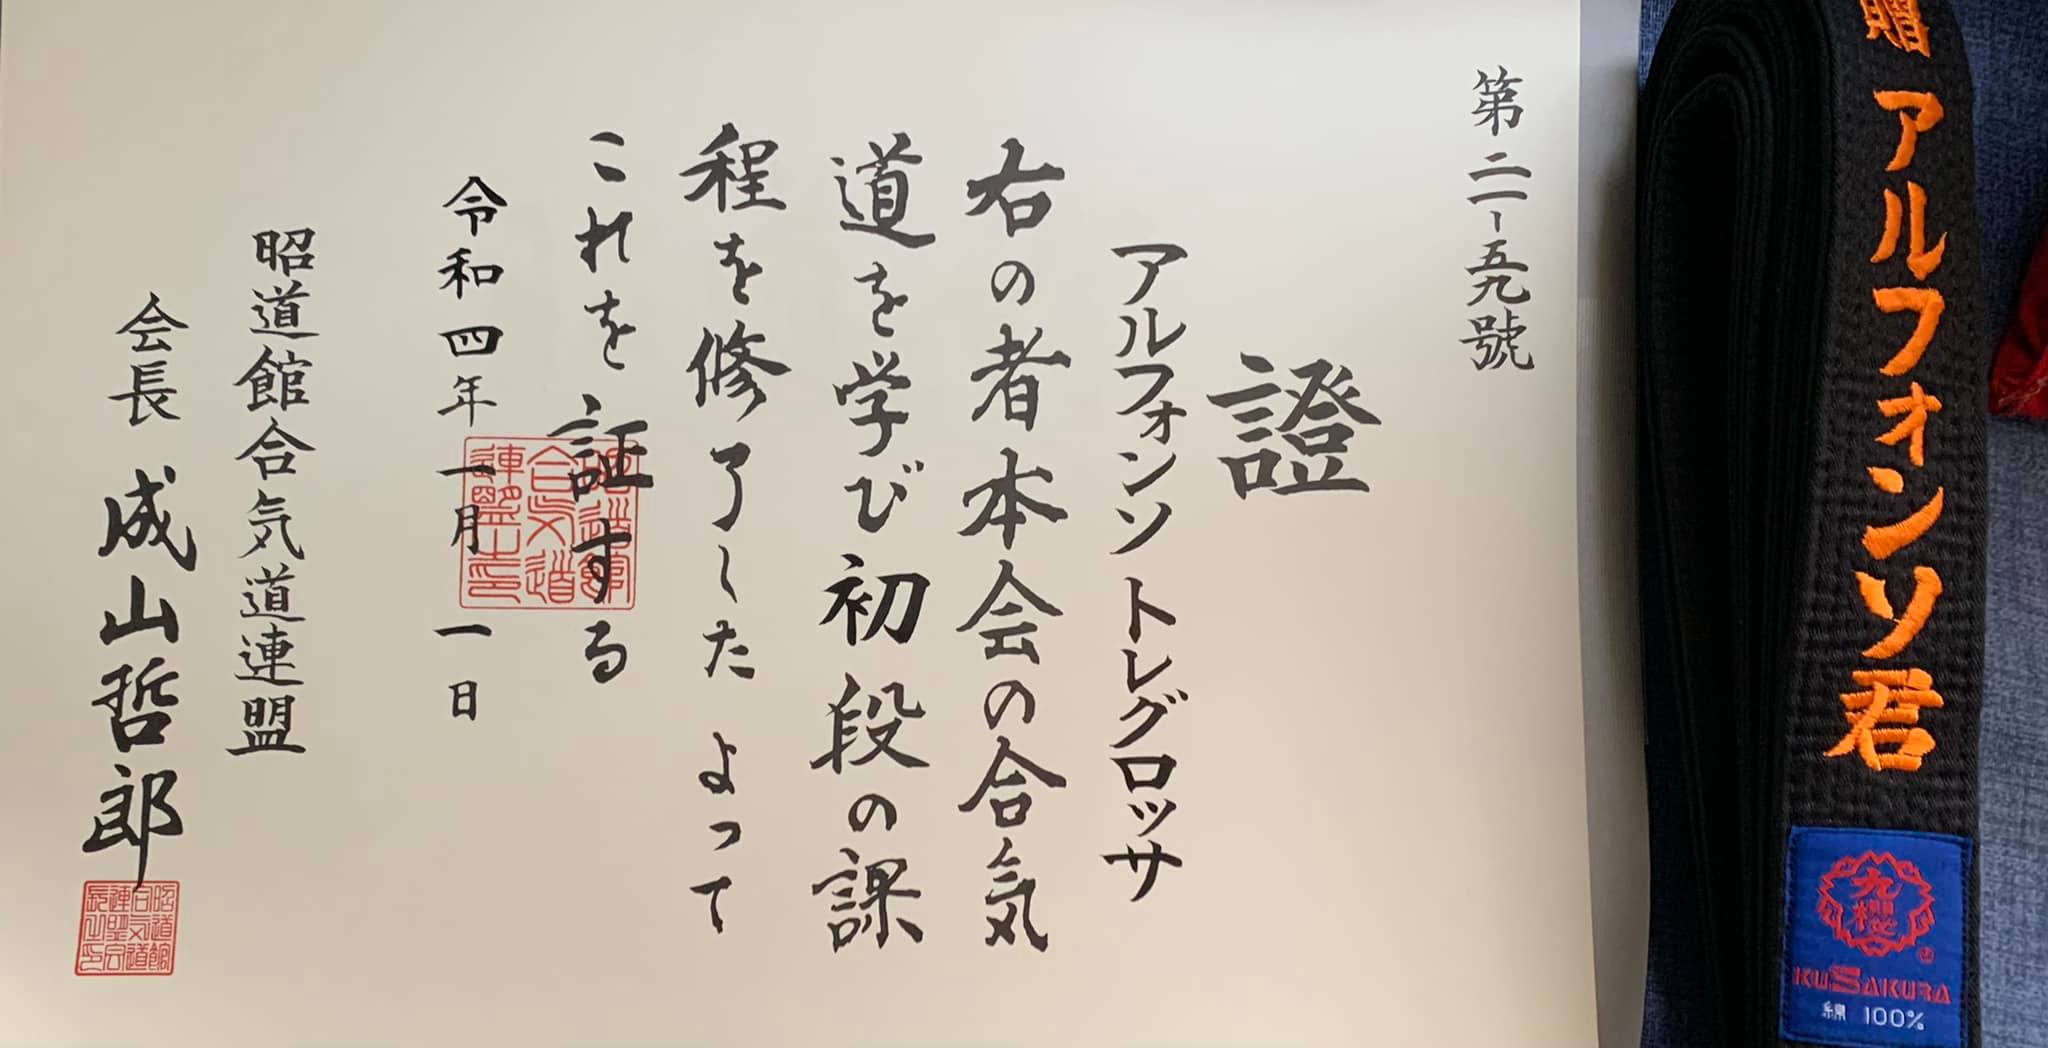 第二一-五九號
證
アルフォンソ トレグロッサ
右の者本会の合気
道を学び初段の課
程を修了した よって
これを証する
令和四年一月一日
昭道館合気道連盟
会長 成山哲郎
昭道館合気道連盟印
昭道館合気道連盟会長之印
贈 アルフォンソ君
九櫻
KUSAKURA
綿 100%